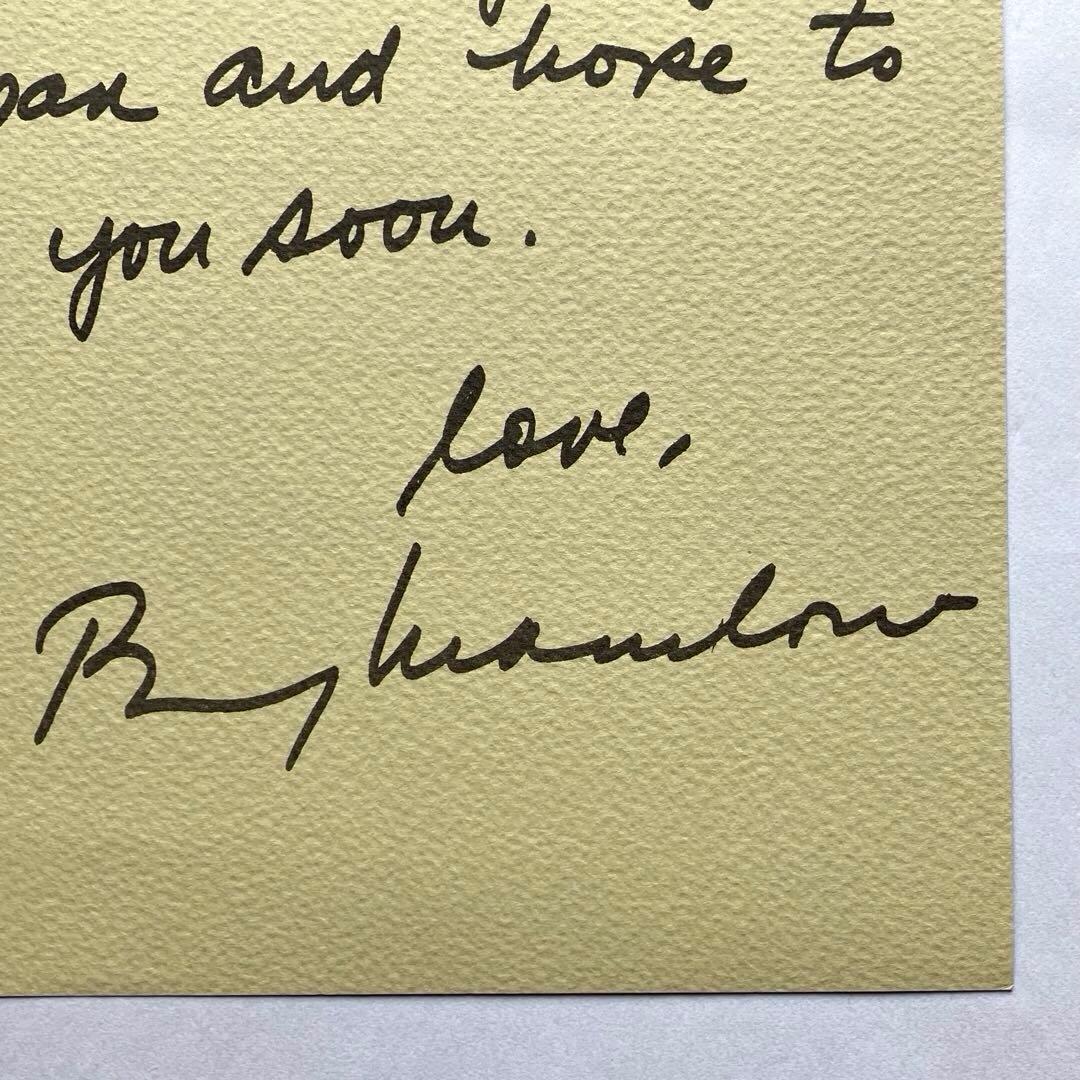 and hope to
you soon.
love,
Barry Manilow